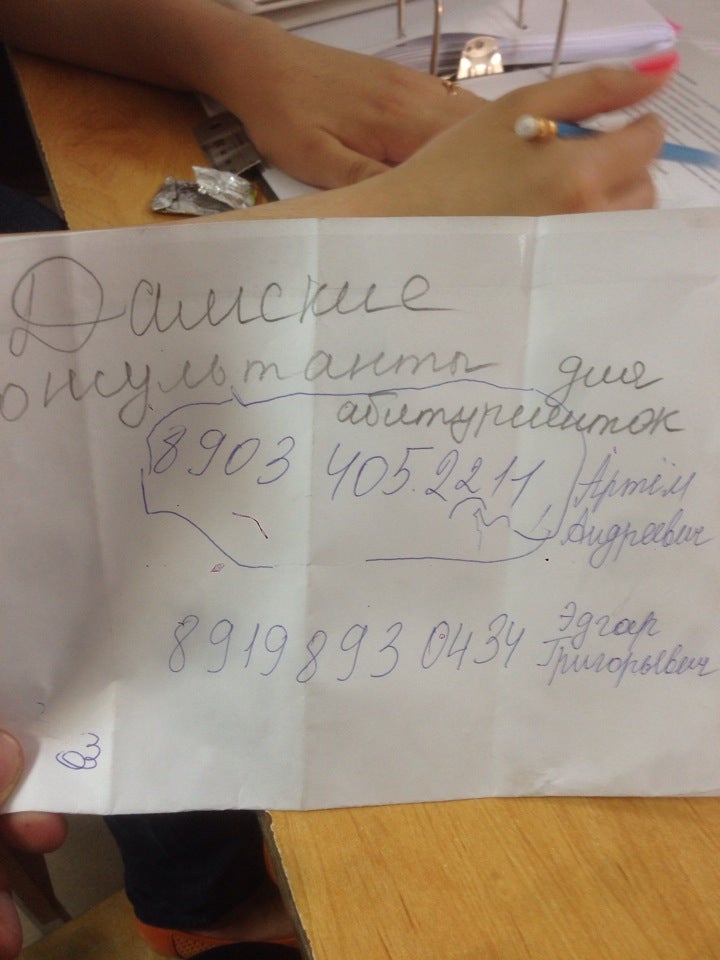 Дамские
онсультанты для
абитуриенток
8903 405 2211 Артём
Андреевич
8919 893 0434 Эдгар
Григорьевич